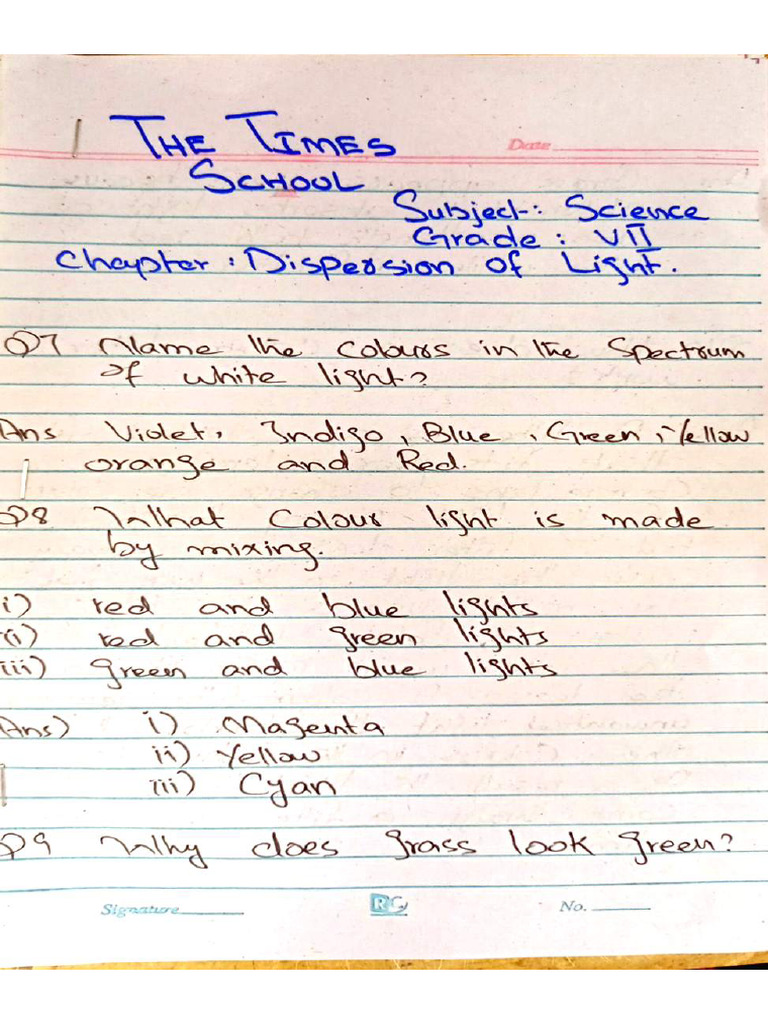 THE TIMES
Date
SCHOOL
Subject: Science
Grade: VII
Chapter: Dispersion of Light.
Q7 Name the colours in the spectrum
of white light?
Ans Violet, Indigo, Blue, Green, Yellow
orange and Red.
Q8 What Colour light is made
by mixing.
i) red and blue lights
ii) red and green lights
iii) green and blue lights
Ans) i) Magenta
ii) Yellow
iii) Cyan
Q9 Why does grass look green?
Signature RC No.